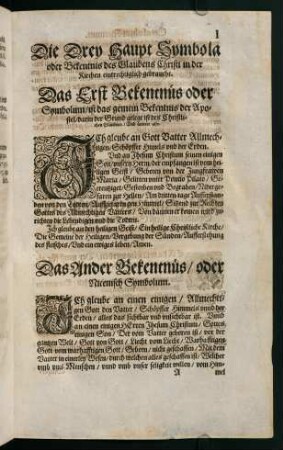 1
Die Drey Haupt Symbola
oder Bekentnis des Glaubens Christi in der
Kirchen eintrechtiglich gebraucht.
Das Erst Bekentnus oder
Symbolum/ ist das gemein Bekentnus der Apo-
stel/ darin der Grund gelegt ist des Christli-
chen Glaubens/
ICh gleube an Gott Vatter Allmech-
tigen/ Schöpffer Himels und der Erden.
Und an Jhesum Christum seinen einigen
Son/ unsern Herrn/ der empfangen ist vom hei-
ligen Geist/ Geborn von der Jungfrawen
Maria/ Gelitten unter Pontio Pilato/ Ge-
creutziget/ Gestorben und Begraben/ Nider ge-
faren zur Hellen/ Am dritten tage Aufferstan-
den von den Todten/ Auffgefaren gen Himmel/ Sitzend zur Rechten
Gottes des Allmechtigen Vatters/ Von dannen er komen wird zu
richten die Lebendigen und die Todten.
Ich gleube an den heiligen Geist/ Ein heilige Christliche Kirche/
Die Gemeine der Heiligen/ Vergebung der Sünden/ Aufferstehung
des fleisches/ Und ein ewiges leben/ Amen.
Das Ander Bekentnüs/ oder
Nicenisch Symbolum.
ICh gleube an einen einigen/ Allmechti-
gen Gott den Vatter/ Schöpffer Himmels unnd der
Erden/ alles das sichtbar und unsichtbar ist. Unnd
an einen einigen HErren Jhesum Christum/ Gottes
einigen Son/ Der vom Vatter geboren ist/ vor der
gantzen Welt/ Gott von Gott/ Liecht vom Liecht/ Warhafftigen
Gott vom warhafftigen Gott/ Geborn/ nicht geschaffen/ Mit dem
Vatter in einerley Wesen/ durch welchen alles geschaffen ist/ Welcher
umb uns Menschen/ unnd umb unser seligkeit willen/ vom Him-
A
mel